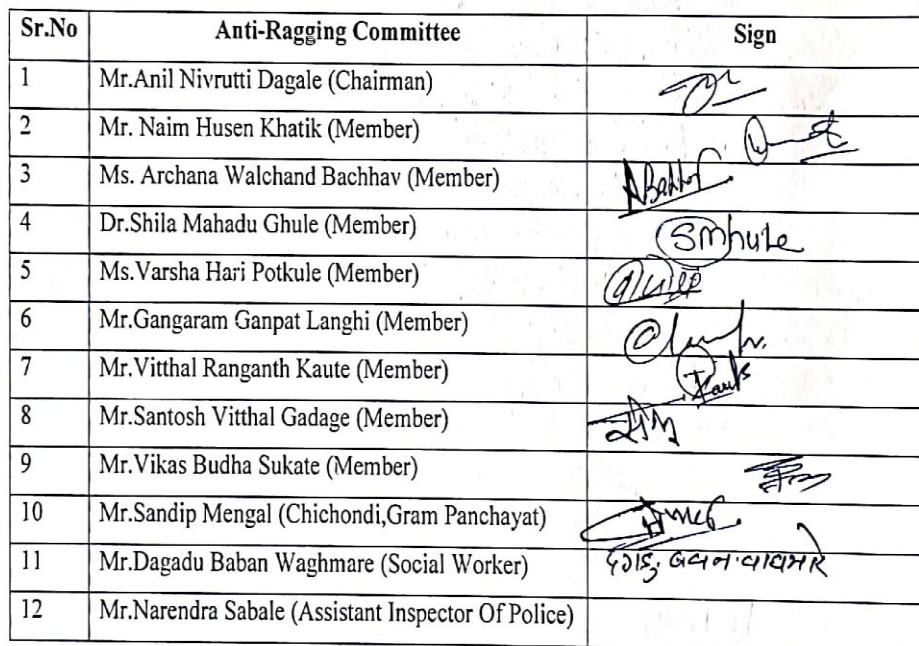 Sr.No Anti-Ragging Committee Sign
1 Mr.Anil Nivrutti Dagale (Chairman)
2 Mr. Naim Husen Khatik (Member)
3 Ms. Archana Walchand Bachhav (Member)
4 Dr.Shila Mahadu Ghule (Member) SMhule
5 Ms.Varsha Hari Potkule (Member)
6 Mr.Gangaram Ganpat Langhi (Member)
7 Mr.Vitthal Ranganth Kaute (Member)
8 Mr.Santosh Vitthal Gadage (Member)
9 Mr.Vikas Budha Sukate (Member)
10 Mr.Sandip Mengal (Chichondi,Gram Panchayat)
11 Mr.Dagadu Baban Waghmare (Social Worker) दगडु बबन वाघमारे
12 Mr.Narendra Sabale (Assistant Inspector Of Police)